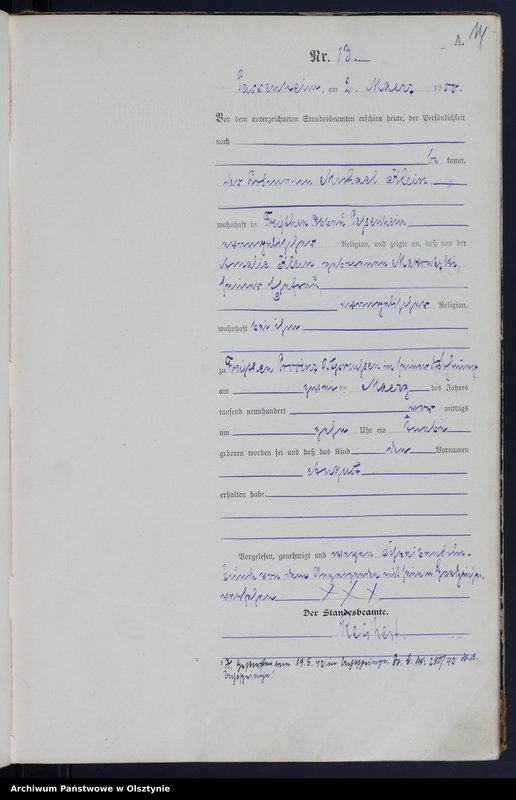 A. 14
Nr. 13.
Passenheim, am 2. Maerz 1900.
Vor dem unterzeichneten Standesbeamten erschien heute, der Persönlichkeit
nach
be kannt,
der Michael Klein,
wohnhaft in Passenheim,
evangelischer Religion, und zeigte an, daß von der
Amalie Klein geborenen
seiner Ehefrau,
evangelischer Religion,
wohnhaft bei ihm
zu Provinz Ostpreußen in seiner Wohnung
am zwei ten Maerz des Jahres
tausend neunhundert vor mittags
um zehn Uhr ein Knabe
geboren worden sei und daß das Kind den Vornamen
August
erhalten habe.
Vorgelesen, genehmigt und wegen Schreibensun-
kunde von dem Anzeigenden mit seinem Handzeichen
versehen XXX
Der Standesbeamte.
Reichert
gestorben am 19.5.42 in 
Archiwum Państwowe w Olsztynie